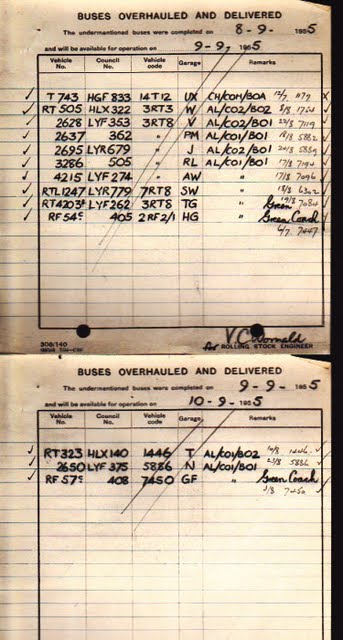 BUSES OVERHAULED AND DELIVERED
The undermentioned buses were completed on 8-9- 1955
and will be available for operation on 9-9- 1955
Vehicle No. Council No. Vehicle code Garage Remarks
T 743 HGF 833 14T12 UX CH/COH/BOA 12/7
RT 505 HLX 322 3RT3 W AL/CO2/BO2 8/8
2628 LYF 353 3RT8 V AL/CO2/BO1 23/8 7119
2637 362 " PM AL/CO1/BO1 18/8 5882
2695 LYR 679 " J AL/CO2/BO1 20/8
3286 505 " RL AL/CO1/BO1 17/8
4215 LYF 274 " AW " 17/8 7096
RTL 1247 LYR 779 7RT8 SW " 18/8
RT 4203 LYF 262 3RT8 TG " Green 19/8
RF 54 405 2RF2/1 HG " Green Coach
6/7 7447
308/140
for ROLLING STOCK ENGINEER
BUSES OVERHAULED AND DELIVERED
The undermentioned buses were completed on 9-9- 1955
and will be available for operation on 10-9- 1955
Vehicle No. Council No. Vehicle code Garage Remarks
RT 323 HLX 140 1446 T AL/CO1/BO2 1446
2650 LYF 375 5886 N AL/CO1/BO1 23/8 5886
RF 57 408 7450 GF " Green Coach
7450